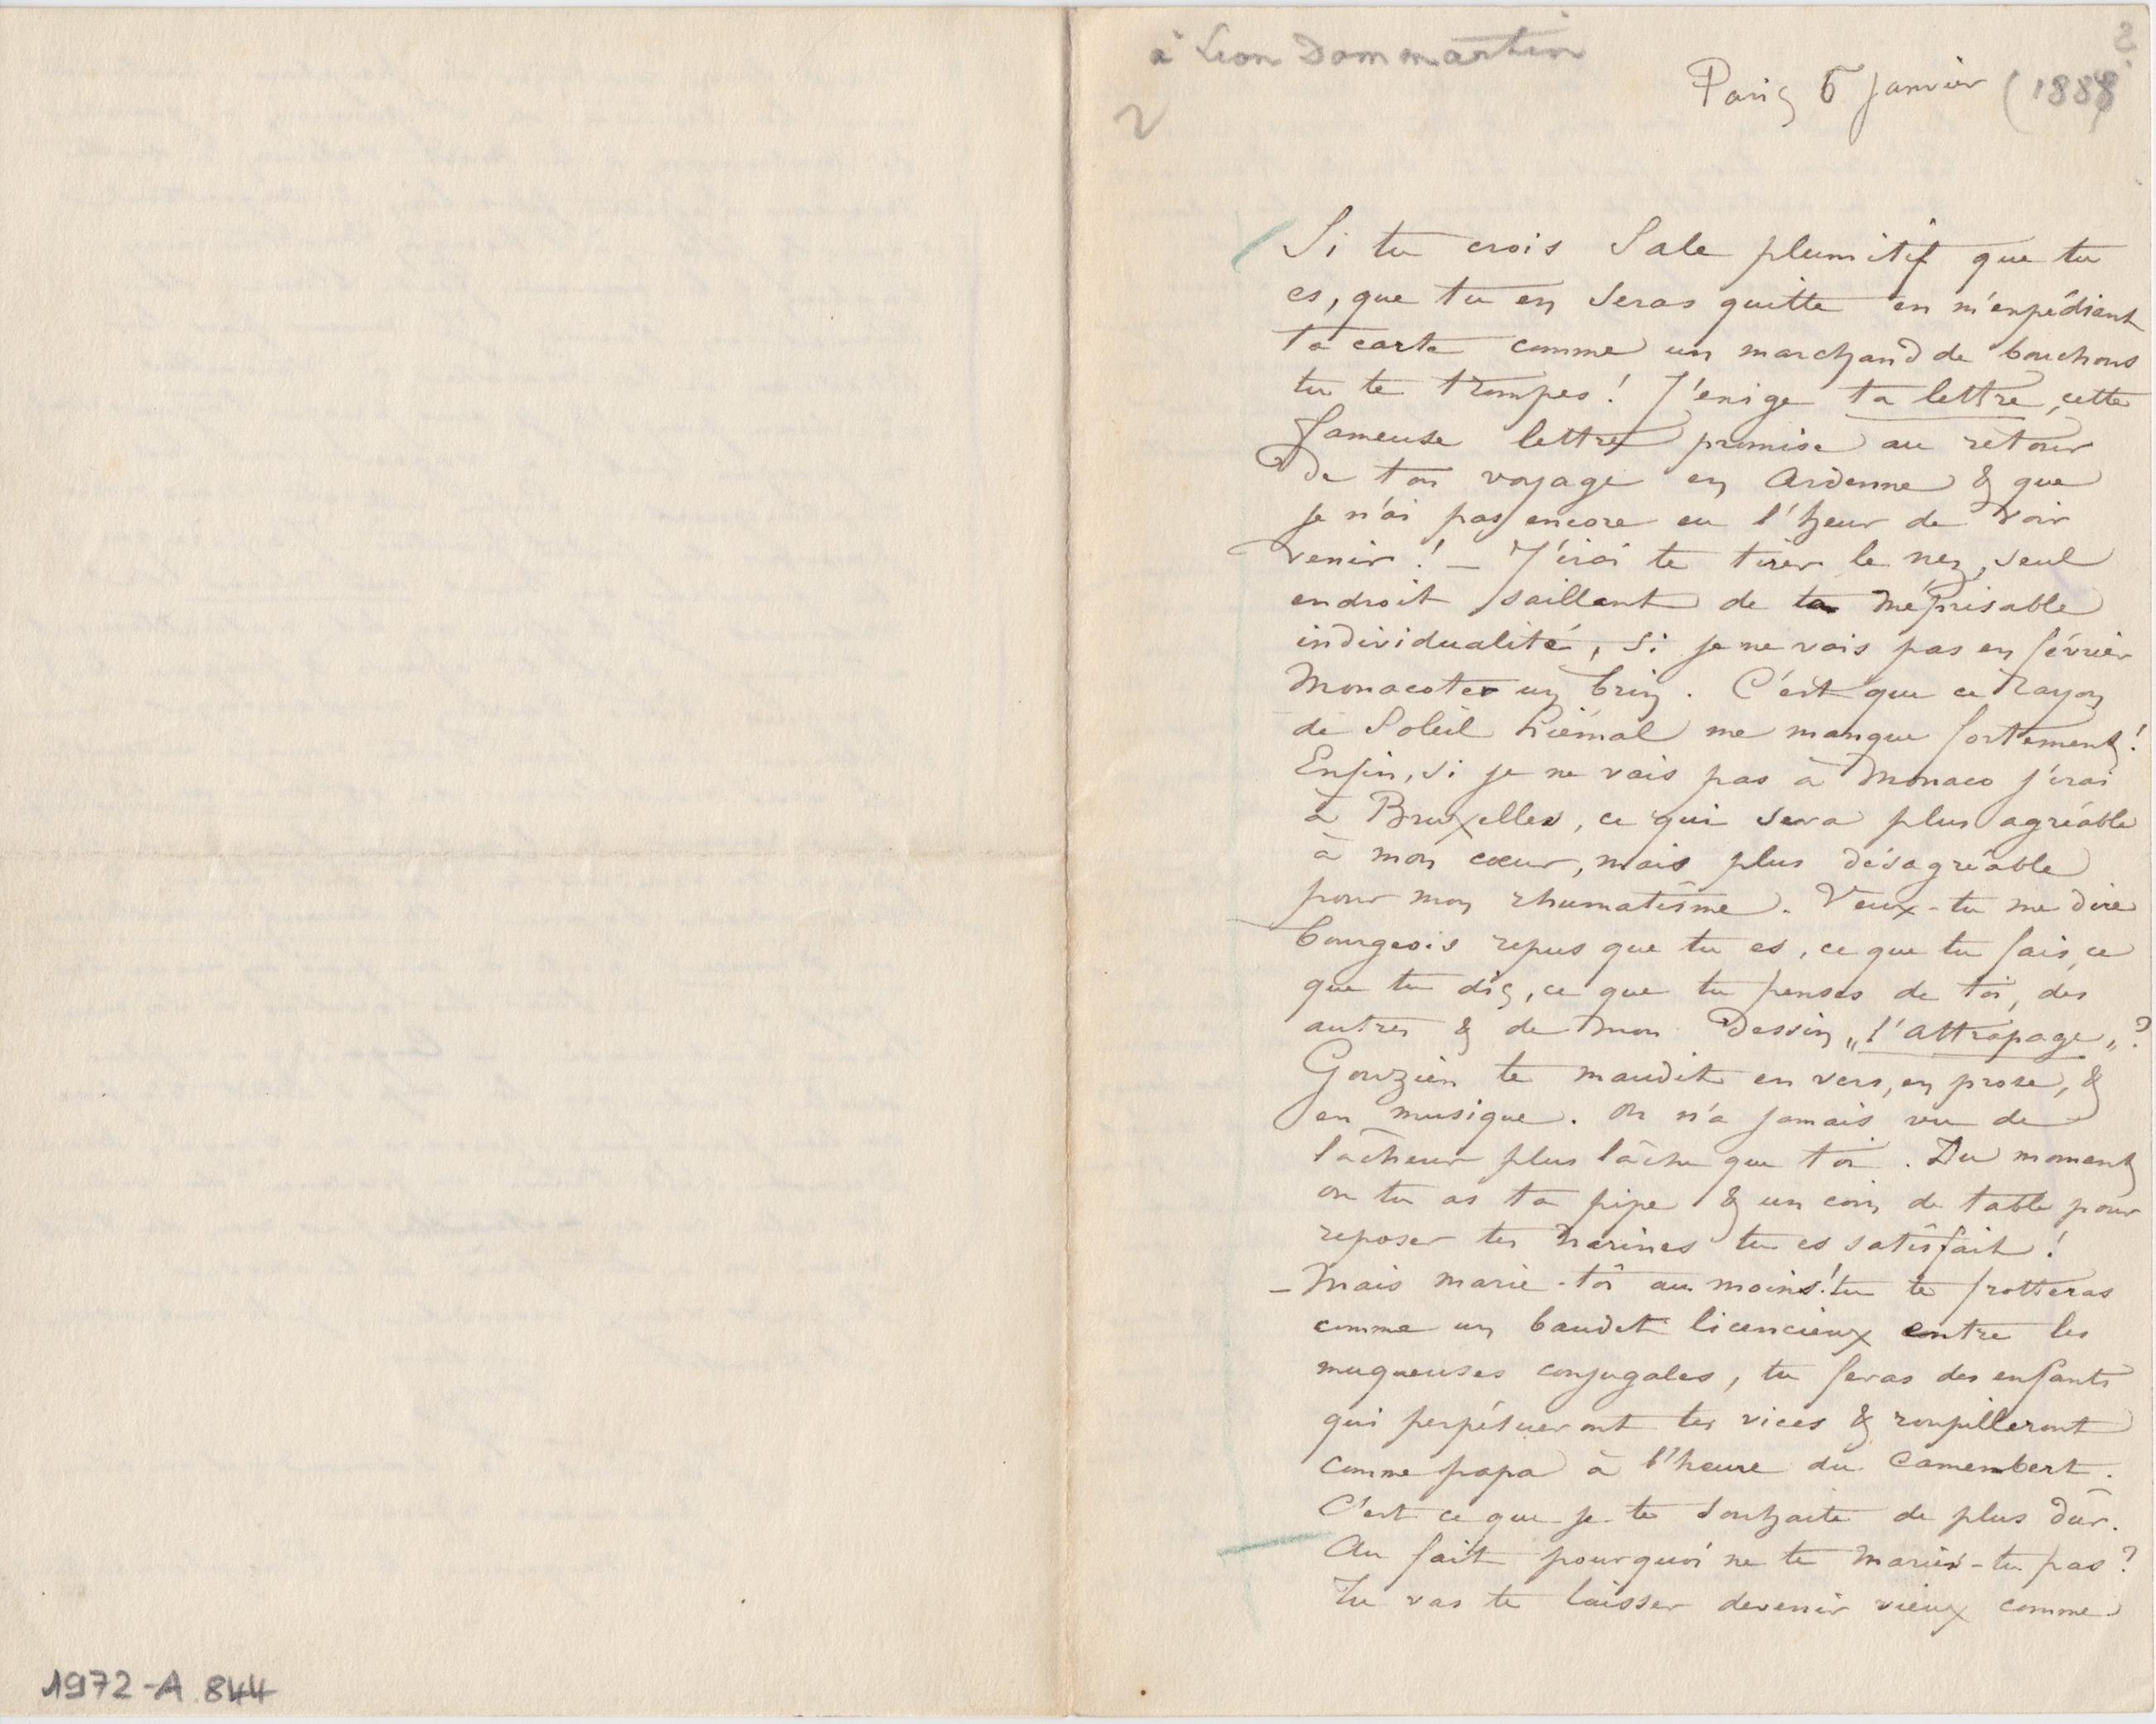 à Léon Dommartin
2
?
Paris 6 janvier (1888
Si tu crois Sale plumitif que tu
es, que tu en seras quitte en m'expédiant
ta carte comme un marchand de bouchons
tu te trompes ! J'exige ta lettre, cette
fameuse lettre promise au retour
de ton voyage en Ardenne & que
je n'ai pas encore eu l'heur de voir
venir ! – J'irai te tirer le nez, seul
endroit saillant de ta méprisable
individualité, si je ne vais pas en février
Monacoter un brin. C'est que ce rayon
de Soleil hiémal me manque fortement !
Enfin, si je ne vais pas à Monaco j'irai
à Bruxelles, ce qui sera plus agréable
à mon cœur, mais plus désagréable
pour mon rhumatisme. Veux-tu me dire
bourgeois repus que tu es, ce que tu fais, ce
que tu dis, ce que tu penses de toi, des
autres & de mon Dessin „l'attrapage„ ?
Gouzien te maudit en vers, en prose, &
en musique. On n'a jamais vu de
lâcheur plus lâche que toi. Du moment
ou tu as ta pipe & un coin de table pour
reposer tes narines tu es satisfait !
– Mais marie-toi au moins ! tu te frotteras
comme un baudet licencieux entre les
muqueuses conjugales, tu feras des enfants
qui perpétueront tes vices & roupilleront
comme papa à l'heure du Camembert.
C'est ce que je te souhaite de plus dur.
Au fait pourquoi ne te maries-tu pas ?
Tu vas te laisser devenir vieux comme
1972-A.844